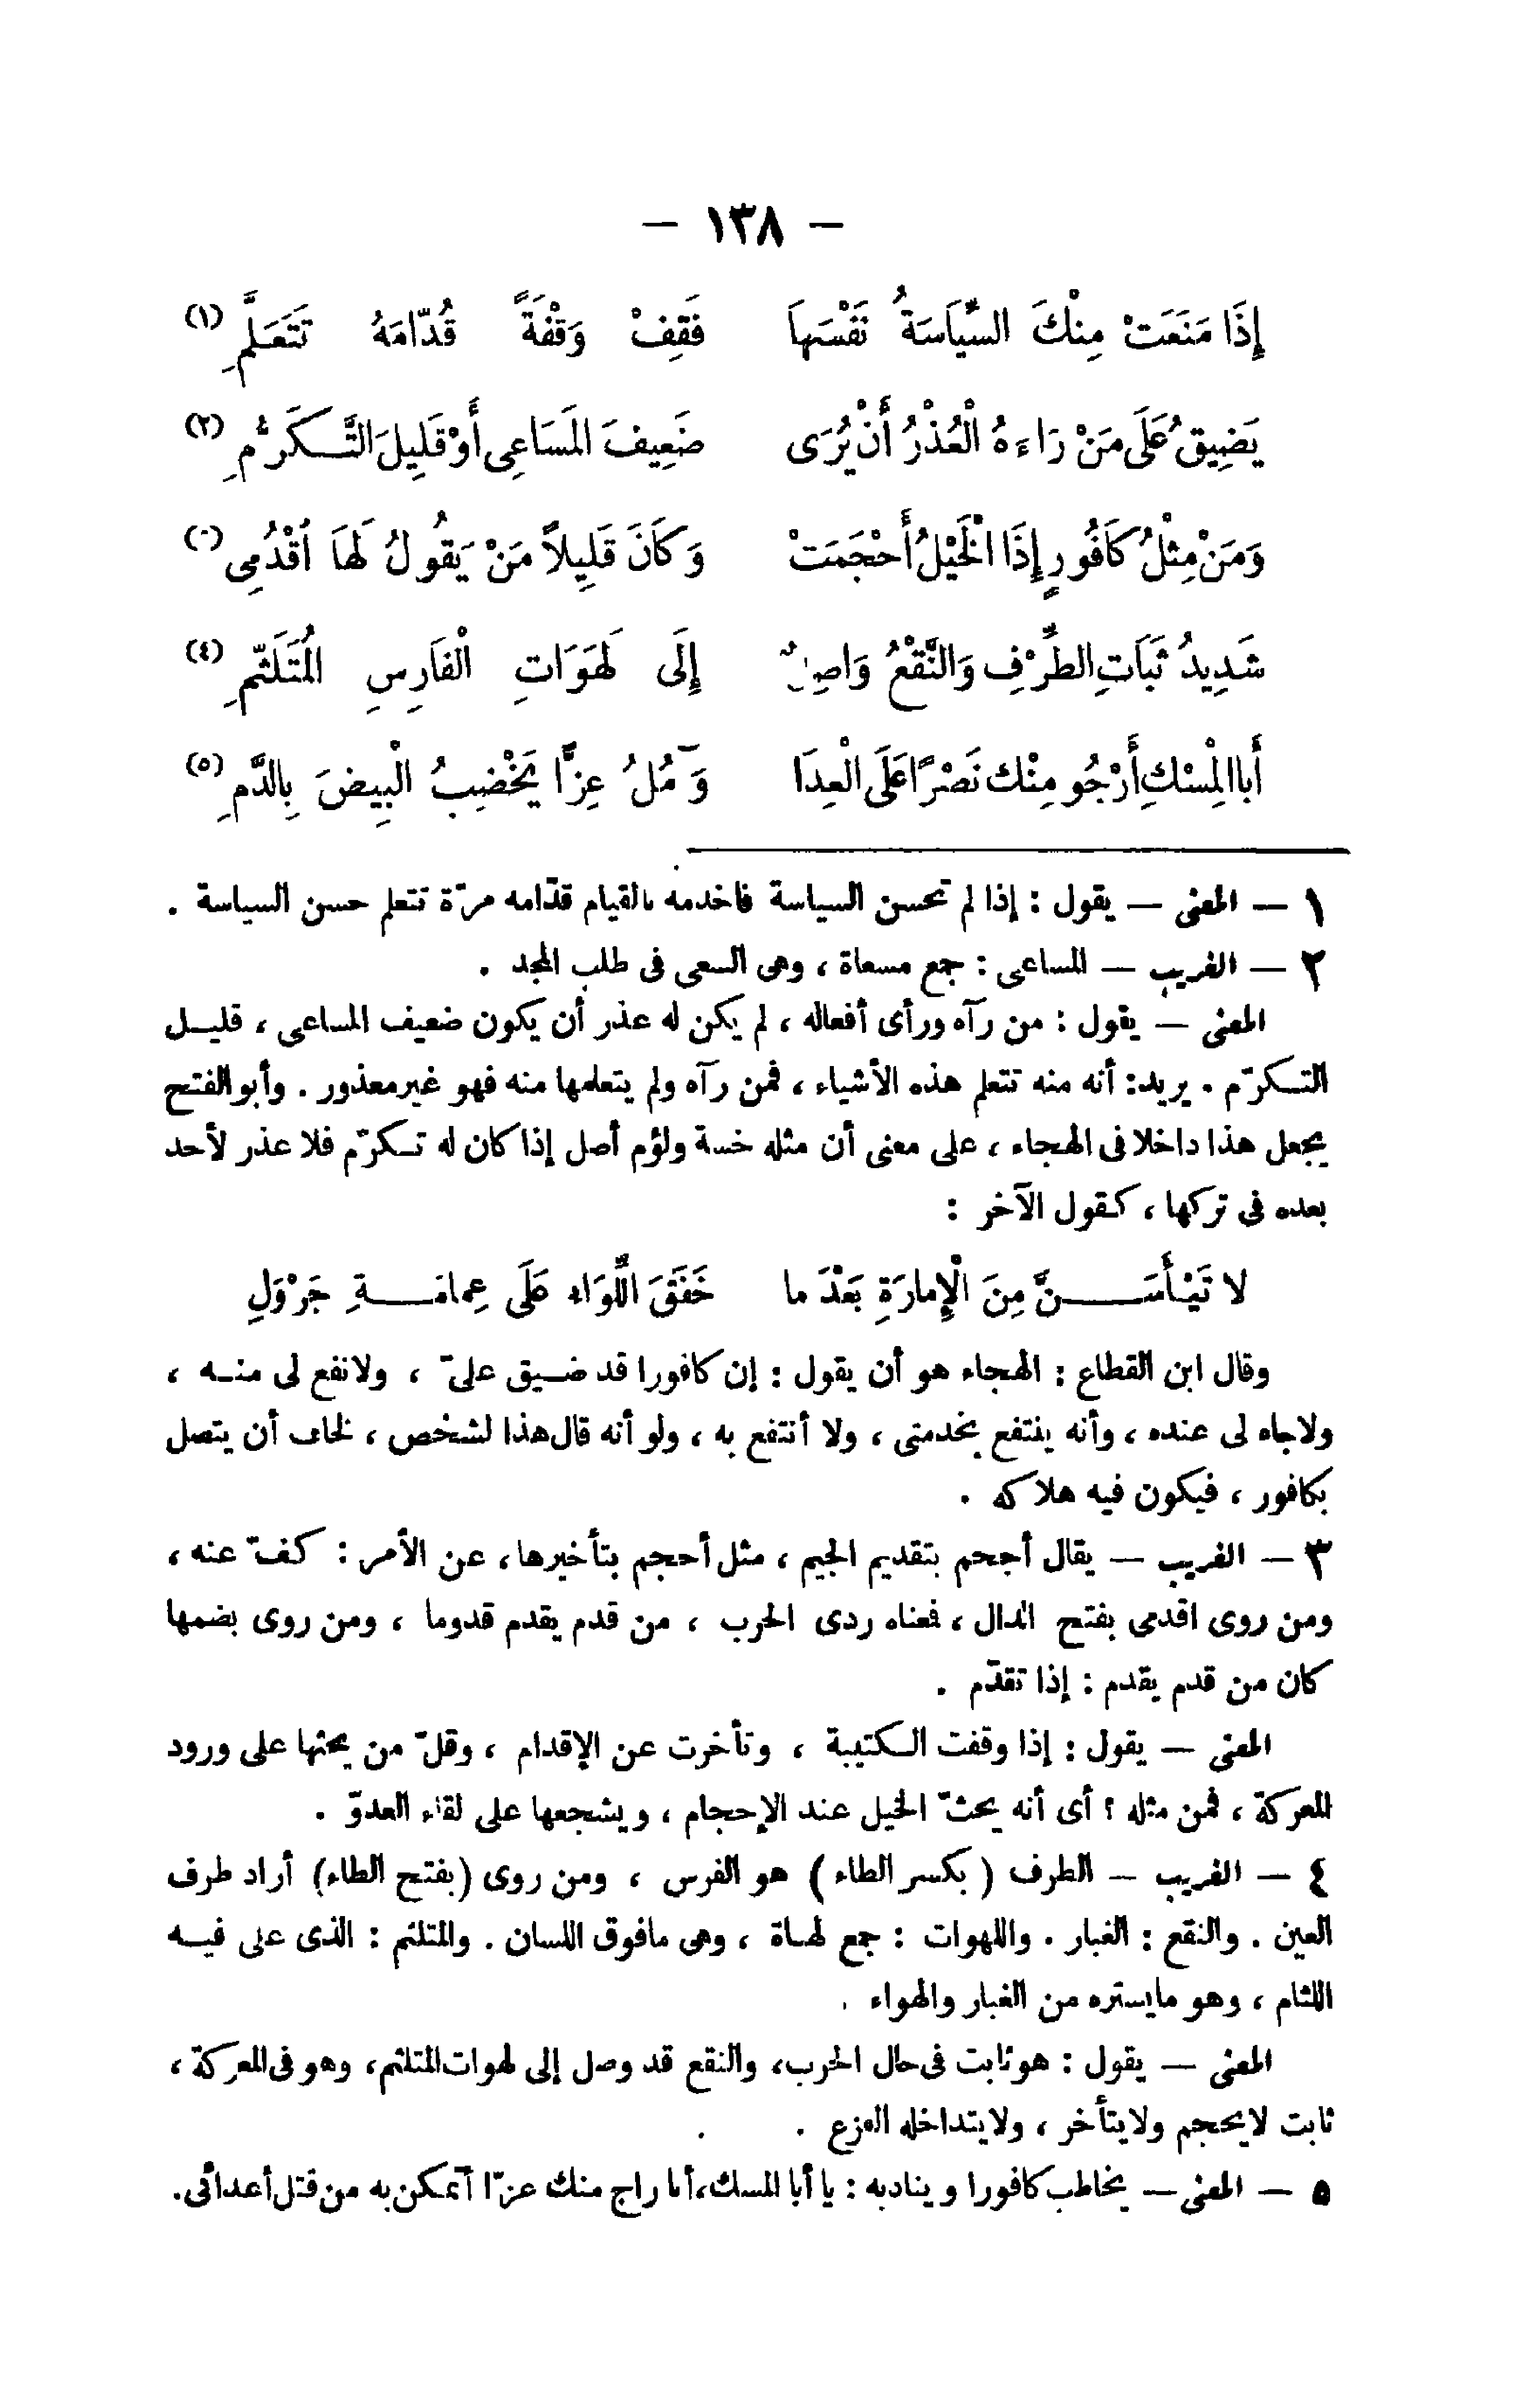 — ١٣٨ —
إِذَا مَنَعَتْ مِنْكَ السِّيَاسَةُ نَفْسَهَا فَقِفْ وَقْفَةً قُدَّامَهُ تَتَعَلَّمِ (١)
يَضِيقُ عَلَى مَنْ رَاءَهُ الْعُذْرُ أَنْ يُرَى ضَعِيفَ المَسَاعِى أَوْ قَلِيلَ التَّكَرُّمِ (٢)
وَمَنْ مِثْلُ كَافُورٍ إِذَا الْخَيْلُ أَحْجَمَتْ وَكَانَ قَلِيلاً مَنْ يَقُولُ لَهَا اُقْدُمِى
شَدِيدُ ثَبَاتِ الطِّرْفِ وَالنَّقْعُ وَاصِلٌ إِلَى لَهَوَاتِ الْفَارِسِ الْمُتَلَثِّمِ (٤)
أَبا الْمِسْكِ أَرْجُو مِنْك نَصْرًا عَلَى الْعِدَا وَآمُلُ عِزًّا يَخْضِبُ الْبِيضَ بِالدَّمِ (٥)
١ — المعنى — يقول : إذا لم تحسن السياسة فاخدمه بالقيام قدّامه مرّة تتعلم حسن السياسة .
٢ — الغريب — المساعى : جمع مسعاة ، وهى السعى فى طلب المجد .
المعنى — يقول : من رآه ورأى أفعاله ، لم يكن له عذر أن يكون ضعيف المساعى ، قليـل
التـكرّم . يريد: أنه منه تتعلم هذه الأشياء ، فمن رآه ولم يتعلمها منه فهو غير معذور . وأبو الفتح
يجعل هذا داخلا فى الهجاء ، على معنى أن مثله خسة ولؤم أصل إذا كان له تـكرّم فلا عذر لأحد
بعده فى تركها ، كـقول الآخر :
لا تَيْـأَسَـــنَّ مِنَ الْإِمارَةِ بَعْدَ ما خَفَقَ اللِّوَاء عَلَى عِمامَــةِ جَرْوَلِ
وقال ابن القطاع : الهجاء هو أن يقول : إن كافورا قد ضـيق علىّ ، ولا نفع لى منـه ،
ولاجاه لى عنده ، وأنه ينتفع بخدمتى ، ولا أنتفع به ، ولو أنه قال هذا لشخص ، لخاف أن يتصل
بكافور ، فيكون فيه هلاكه .
٣ — الغريب — يقال أجحم بتقديم الجيم ، مثل أحجم بتأخيرها، عن الأمر : كفّ عنه ،
ومن روى اقدمى بفتح الدال ، فمعناه ردى الحرب ، من قدم يقدم قدوما ، ومن روى بضمها
كان من قدم يقدم : إذا تقدّم .
المعنى — يقول : إذا وقفت الـكتيبة ، وتأخرت عن الإقدام ، وقلّ من يحثها على ورود
المعركة ، فمن مثله ؟ أى أنه يحثّ الخيل عند الإحجام ، ويشجعها على لقاء العدوّ .
٤ — الغريب — الطرف ( بكسر الطاء ) هو الفرس ، ومن روى (بفتح الطاء) أراد طرف
العين . والنقع : الغبار . واللهوات : جمع لهـاة ، وهى مافوق اللسان . والمتلثم : الذى على فيـه
اللثام ، وهو مايستره من الغبار والهواء .
المعنى — يقول : هو ثابت فى حال الحرب، والنقع قد وصل إلى لهوات المتلثم، وهو فى المعركة ،
ثابت لايحجم ولايتأخر ، ولايتداخله الفزع .
٥ — المعنى — يخاطب كافورا ويناديه : يا أبا المسك، أنا راج منك عزّا أتمكن به من قتل أعدائى.